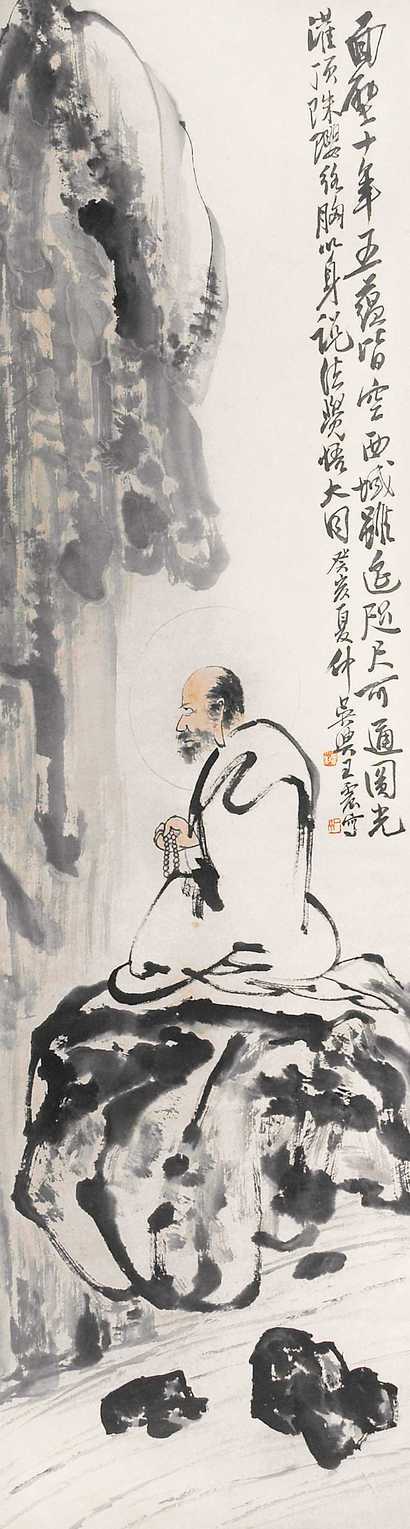 面壁十年五蘊皆空西域雖遠咫尺可通圓光
灌頂珠瓔絡胸以身說法覺悟大同癸亥夏仲吳興王震寫